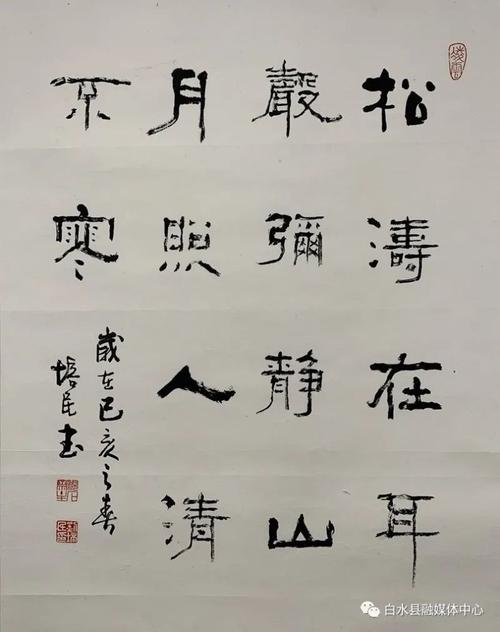 松濤在耳
聲彌靜山
月照人清
不寒
歲在己亥之春
培民书
白水县融媒体中心